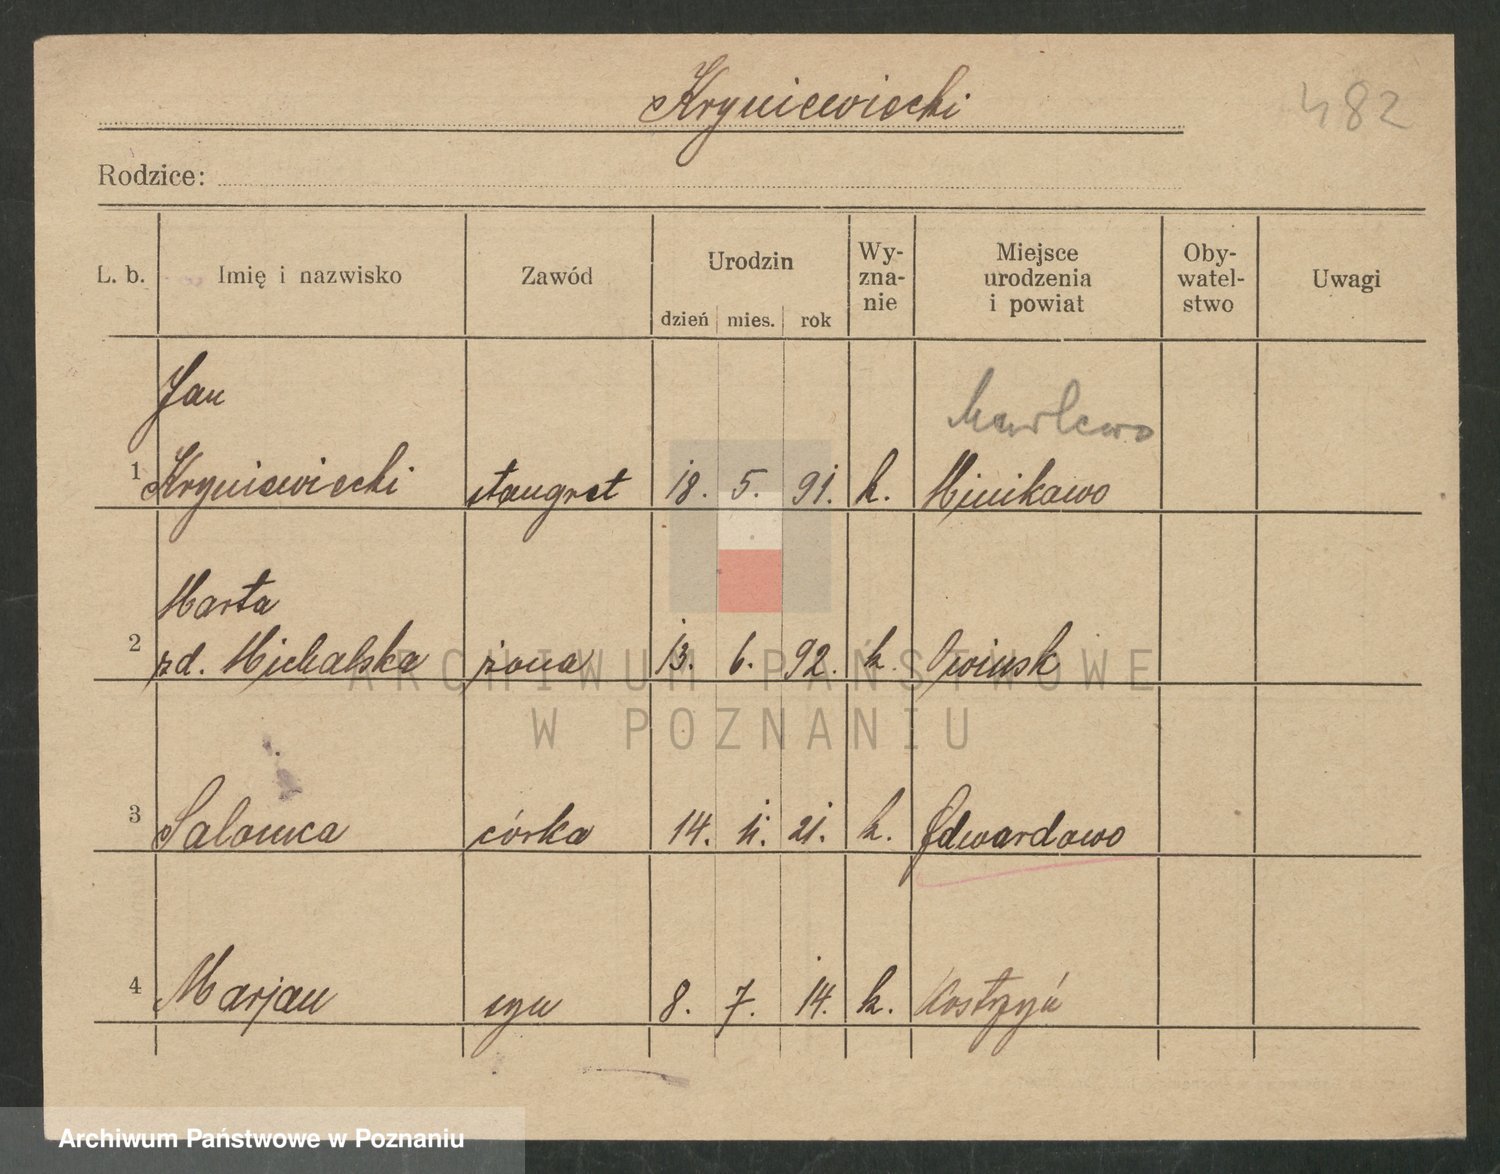 Kryniewiecki
482
Rodzice:
L. b. Imię i nazwisko Zawód Urodzin dzień mies. rok Wy-zna-nie Miejsce urodzenia i powiat Oby-watel-stwo Uwagi
Jan
1 Kryniewiecki stangret 18. 5. 91. k. Minikowo
Marta
2 zd. Michalska żona 13. 6. 92. k. Owinsk
3 Salomea córka 14. 11. 21. k. Edwardowo
4 Marjan syn 8. 7. 14. k. Kostrzyń
ARCHIWUM PAŃSTWOWE
W POZNANIU
Archiwum Państwowe w Poznaniu